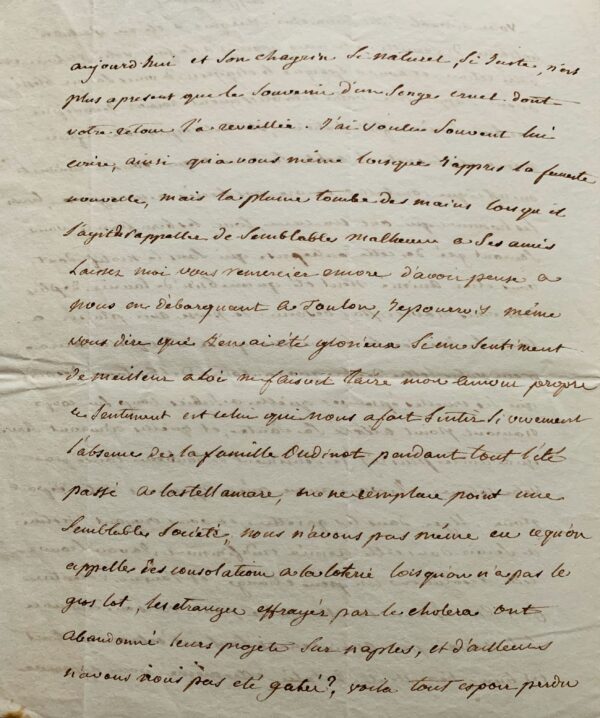 aujourd'hui et son chagrin si naturel, si juste, n'est
plus apresent que le souvenir d'un songe cruel dont
votre retour l'a reveillée. J'ai voulu souvent lui
ecrire, ainsi qu'a vous même lorsque j'appris la funeste
nouvelle, mais la plume tombe des mains lorsqu'il
s'agit d'appeller de semblables malheurs a ses amis
Laissez moi vous remercier encore d'avoir pensé a
nous en débarquant a Toulon, je pourrois même
vous dire que j'en ai été glorieux si un sentiment
de meilleur aloi ne faisoit taire mon amour propre
ce sentiment est celui qui nous a fait sentir si vivement
l'absence de la famille Oudinot pendant tout l'été
passé a Castellamare, on ne remplace point une
semblable société, nous n'avons pas même eu ce qu'on
appelle des consolations a la loterie lorsqu'on n'a pas le
gros lot, les etrangers effrayés par le cholera ont
abandonné leurs projets sur naples, et d'ailleurs
n'avons nous pas été gatés?, voila tout espoir perdu